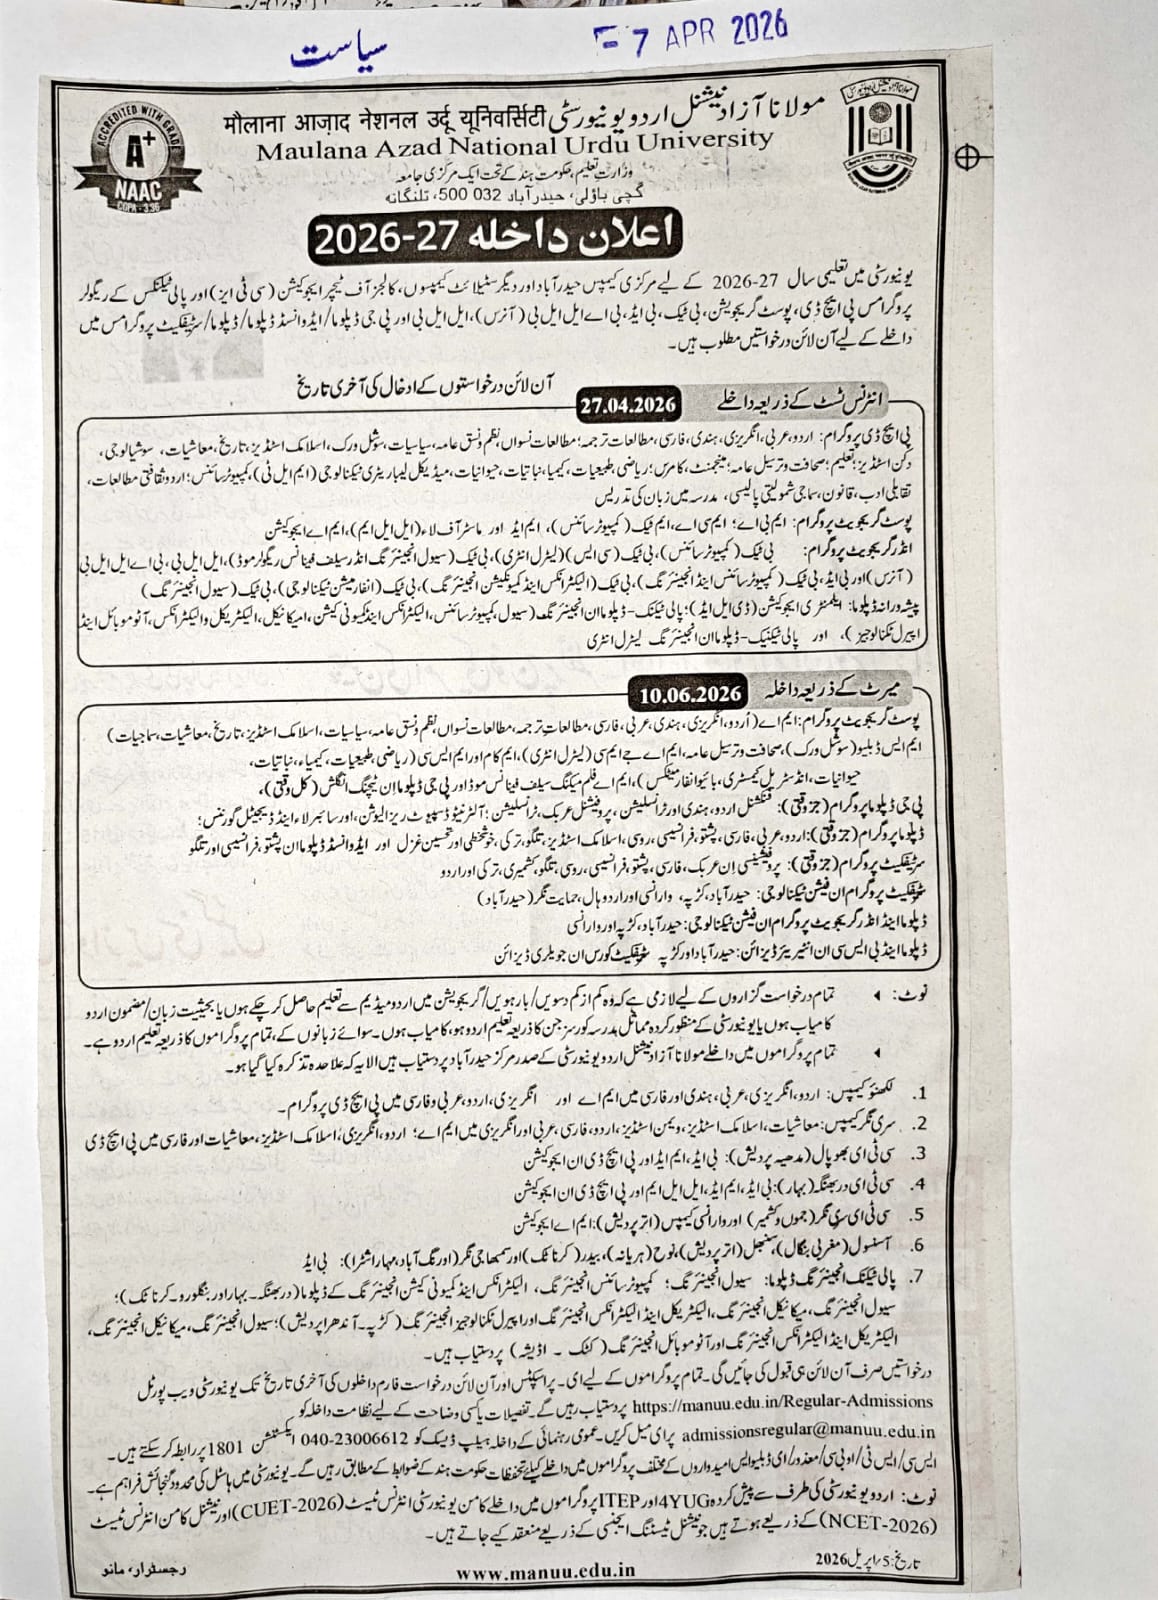 سیاست
7 APR 2026
ACCREDITED WITH GRADE
A+
NAAC
CGPA 3.36
مولانا آزاد نیشنل اردو یونیورسٹی मौलाना आज़ाद नेशनल उर्दू यूनिवर्सिटी
Maulana Azad National Urdu University
وزارتِ تعلیم، حکومت ہند کے تحت ایک مرکزی جامعہ
گچی باؤلی، حیدرآباد 032 500، تلنگانہ
اعلان داخلہ 27-2026
یونیورسٹی میں تعلیمی سال 27-2026 کے لیے مرکزی کیمپس حیدرآباد اور دیگر سٹیلائٹ کیمپسوں، کالجز آف ٹیچر ایجوکیشن (سی ٹی ایز) اور پالی ٹیکنکس کے ریگولر
پروگرامس پی ایچ ڈی، پوسٹ گریجویشن، بی ٹیک، بی ایڈ، بی اے ایل ایل بی (آنرس)، ایل ایل بی اور پی جی ڈپلوما/ایڈوانسڈ ڈپلوما/ڈپلوما/سرٹیفکیٹ پروگرامس میں
داخلے کے لیے آن لائن درخواستیں مطلوب ہیں۔
آن لائن درخواستوں کے ادخال کی آخری تاریخ
انٹرنس ٹسٹ کے ذریعہ داخلے 27.04.2026
پی ایچ ڈی پروگرام: اردو، عربی، انگریزی، ہندی، فارسی، مطالعات ترجمہ؛ مطالعات نسواں، نظم و نسق عامہ، سیاسیات، سوشل ورک، اسلامک اسٹڈیز، تاریخ، معاشیات، سوشیالوجی،
دکن اسٹڈیز؛ تعلیم؛ صحافت و ترسیل عامہ؛ مینجمنٹ، کامرس؛ ریاضی، طبیعیات، کیمیا، نباتیات، حیوانیات، میڈیکل لیباریٹری ٹیکنالوجی (ایم ایل ٹی)، کمپیوٹر سائنس؛ اردو ثقافتی مطالعات،
تقابلی ادب، قانون، سماجی شمولیتی پالیسی، مدرسہ میں زبان کی تدریس
پوسٹ گریجویٹ پروگرام: ایم بی اے؛ ایم سی اے، ایم ٹیک (کمپیوٹر سائنس)، ایم ایڈ اور ماسٹر آف لاء (ایل ایل ایم)، ایم اے ایجوکیشن
انڈر گریجویٹ پروگرام: بی ٹیک (کمپیوٹر سائنس)، بی ٹیک (سی ایس) (لیٹرل انٹری)، بی ٹیک (سیول انجینئرنگ انڈر سیلف فینانس ریگولر موڈ)، ایل ایل بی، بی اے ایل ایل بی
(آنرس) اور بی ایڈ، بی ٹیک (کمپیوٹر سائنس اینڈ انجینئرنگ)، بی ٹیک (الیکٹرانکس اینڈ کمیونکیشن انجینئرنگ)، بی ٹیک (انفارمیشن ٹیکنالوجی)، بی ٹیک (سیول انجینئرنگ)
پیشہ ورانہ ڈپلوما: ایلمنٹری ایجوکیشن (ڈی ایل ایڈ)؛ پالی ٹیکنک - ڈپلوما ان انجینئرنگ (سیول، کمپیوٹر سائنس، الیکٹرانکس اینڈ کمیونی کیشن، میکانیکل، الیکٹریکل و الیکٹرانکس، آٹو موبائل اینڈ
اپیرل ٹکنالوجیز)، اور پالی ٹیکنیک - ڈپلوما ان انجینئرنگ لیٹرل انٹری
میرٹ کے ذریعہ داخلہ 10.06.2026
پوسٹ گریجویٹ پروگرام: ایم اے (اُردو، انگریزی، ہندی، عربی، فارسی، مطالعاتِ ترجمہ، مطالعات نسواں، نظم و نسق عامہ، سیاسیات، اسلامک اسٹڈیز، تاریخ، معاشیات، سماجیات)
ایم ایس ڈبلیو (سوشل ورک)، صحافت و ترسیل عامہ، ایم اے جے ایم سی (لیٹرل انٹری)، ایم کام اور ایم ایس سی (ریاضی، طبعیات، کیمیاء، نباتیات،
حیوانیات، انڈسٹریل کیمسٹری، بائیو انفارمیٹکس)، ایم اے فلم میکنگ سیلف فینانس موڈ اور پی جی ڈپلوما اِن ٹیچنگ انگلش (کل وقتی)،
پی جی ڈپلوما پروگرام (جزوقتی): فنکشنل اردو، ہندی اور ٹرانسلیشن، پروفیشنل عربک، ٹرانسلیشن؛ آلٹرنیٹو ڈسپیوٹ ریزالیوشن، اور سائبر لاء اینڈ ڈیجیٹل گورننس؛
ڈپلوما پروگرام (جزوقتی): اردو، عربی، فارسی، پشتو، فرانسیسی، روسی، اسلامک اسٹڈیز، تلگو، ترکی، خوشخطی اور تحسین غزل اور ایڈوانسڈ ڈپلوما ان پشتو، فرانسیسی اور تلگو
سرٹیفکیٹ پروگرام (جزوقتی): پروفیشنسی اِن عربک، فارسی، پشتو، فرانسیسی، روسی، تلگو، کشمیری، ترکی اور اردو
سرٹیفکیٹ پروگرام ان فیشن ٹیکنالوجی: حیدرآباد، کڑپہ، وارانسی اور اردو ہال، حمایت نگر (حیدرآباد)
ڈپلوما اینڈ انڈر گریجویٹ پروگرام ان فیشن ٹیکنالوجی: حیدرآباد، کڑپہ اور وارانسی
ڈپلوما اینڈ بی ایس سی ان انٹیریئر ڈیزائن: حیدرآباد اور کڑپہ سرٹیفکیٹ کورس ان جویلری ڈیزائن
نوٹ: ◄ تمام درخواست گزاروں کے لیے لازمی ہے کہ وہ کم از کم دسویں/بارہویں/گریجویشن میں اردو میڈیم سے تعلیم حاصل کر چکے ہوں یا بحیثیت زبان/مضمون اردو
کامیاب ہوں یا یونیورسٹی کے منظور کردہ مماثل مدرسہ کورسز جن کا ذریعہ تعلیم اردو ہو، کامیاب ہوں۔ سوائے زبانوں کے، تمام پروگراموں کا ذریعہ تعلیم اردو ہے۔
◄ تمام پروگراموں میں داخلے مولانا آزاد نیشنل اردو یونیورسٹی کے صدر مرکز حیدرآباد پر دستیاب ہیں الا یہ کہ علاحدہ تذکرہ کیا گیا ہو۔
1. لکھنؤ کیمپس: اردو، انگریزی، عربی، ہندی اور فارسی میں ایم اے اور انگریزی، اردو، عربی و فارسی میں پی ایچ ڈی پروگرام۔
2. سری نگر کیمپس: معاشیات، اسلامک اسٹڈیز، ویمن اسٹڈیز، اردو، فارسی، عربی اور انگریزی میں ایم اے؛ اردو، انگریزی، اسلامک اسٹڈیز، معاشیات اور فارسی میں پی ایچ ڈی
3. سی ٹی ای بھوپال (مدھیہ پردیش): بی ایڈ، ایم ایڈ اور پی ایچ ڈی ان ایجوکیشن
4. سی ٹی ای دربھنگہ (بہار): بی ایڈ، ایم ایڈ، ایل ایل ایم اور پی ایچ ڈی ان ایجوکیشن
5. سی ٹی ای سری نگر (جموں و کشمیر) اور وارانسی کیمپس (اتر پردیش): ایم اے ایجوکیشن
6. آسنسول (مغربی بنگال)، سنبھل (اتر پردیش)، نوح (ہریانہ)، بیدر (کرناٹک) اور سمبھاجی نگر (اورنگ آباد، مہاراشٹرا): بی ایڈ
7. پالی ٹیکنک انجینئرنگ ڈپلوما: سیول انجینئرنگ؛ کمپیوٹر سائنس انجینئرنگ، الیکٹرانکس اینڈ کمیونی کیشن انجینئرنگ کے ڈپلوما (دربھنگہ - بہار اور بنگلورو - کرناٹک)؛
سیول انجینئرنگ، میکانیکل انجینئرنگ، الیکٹریکل اینڈ الیکٹرانکس انجینئرنگ اور اپیرل ٹکنالوجیز انجینئرنگ (کڑپہ - آندھرا پردیش)؛ سیول انجینئرنگ، میکانیکل انجینئرنگ،
الیکٹریکل اینڈ الیکٹرانکس انجینئرنگ اور آٹو موبائل انجینئرنگ (کٹک - اڈیشہ) پر دستیاب ہیں۔
درخواستیں صرف آن لائن ہی قبول کی جائیں گی۔ تمام پروگراموں کے لیے ای-پراسپکٹس اور آن لائن درخواست فارم داخلوں کی آخری تاریخ تک یونیورسٹی ویب پورٹل
https://manuu.edu.in/Regular-Admissions پر دستیاب رہیں گے۔ تفصیلات یا کسی وضاحت کے لیے نظامت داخلہ کو
admissionsregular@manuu.edu.in پر ای میل کریں۔ عمومی رہنمائی کے داخلہ ہیلپ ڈیسک کو 23006612-040 ایکسٹنشن 1801 پر رابطہ کرسکتے ہیں۔
ایس سی/ایس ٹی/او بی سی/معذور/ای ڈبلیو ایس امیدواروں کے مختلف پروگراموں میں داخلے کیلئے تحفظات حکومت ہند کے ضوابط کے مطابق رہیں گے۔ یونیورسٹی میں ہاسٹل کی محدود گنجائش فراہم ہے۔
نوٹ: اردو یونیورسٹی کی طرف سے پیش کردہ 4YUG اور ITEP پروگراموں میں داخلے کامن یونیورسٹی انٹرنس ٹیسٹ (CUET-2026) اور نیشنل کامن انٹرنس ٹیسٹ
(NCET-2026) کے ذریعے ہوتے ہیں جو نیشنل ٹیسٹنگ ایجنسی کے ذریعے منعقد کیے جاتے ہیں۔
تاریخ: 5/اپریل 2026
www.manuu.edu.in
رجسٹرار، مانو